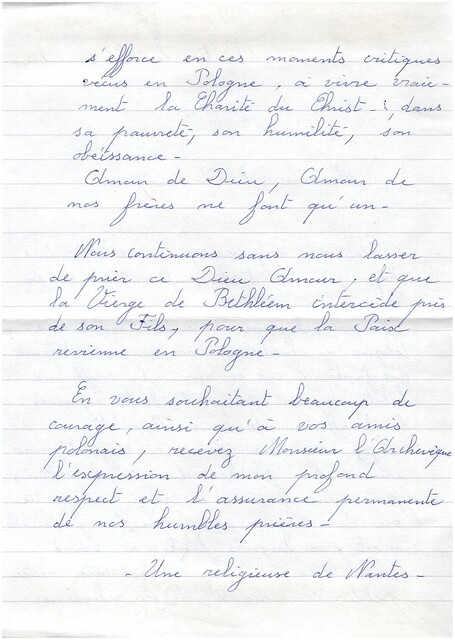 s'efforce en ces moments critiques
vécus en Pologne, à vivre vraie-
ment la Charité du Christ : dans
sa pauvreté, son humilité, son
obéissance -
Amour de Dieu, Amour de
nos frères ne font qu'un -
Nous continuons sans nous lasser
de prier ce Dieu Amour, et que
la Vierge de Bethléem intercède près
de son Fils, pour que la Paix
revienne en Pologne -
En vous souhaitant beaucoup de
courage, ainsi qu'à vos amis
polonais, recevez Monsieur l'Archevêque
l'expression de mon profond
respect et l'assurance permanente
de nos humbles prières -
- Une religieuse de Nantes -